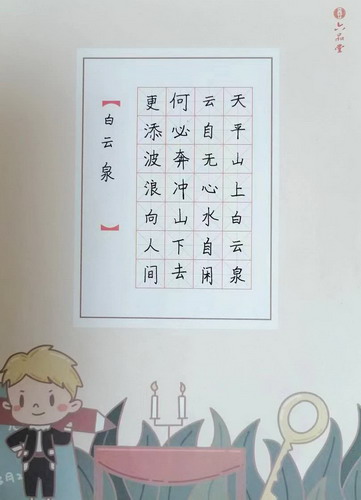 六品堂
天平山上白云泉
云自无心水自闲
何必奔冲山下去
更添波浪向人间
【白云泉】